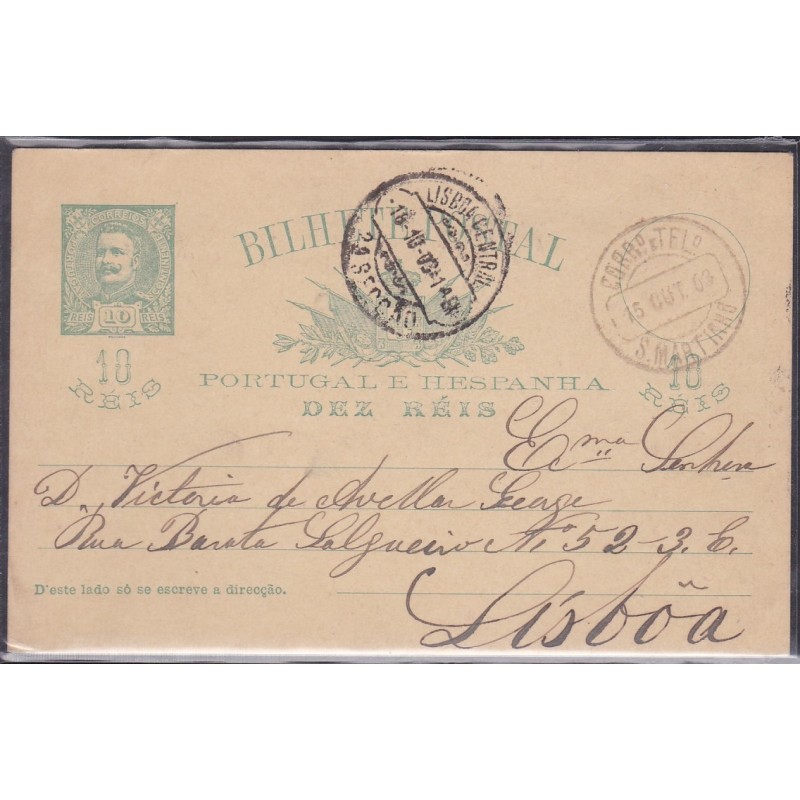 BILHETE POSTAL
10
REIS REIS
10
RÉIS
10
RÉIS
PORTUGAL E HESPANHA
DEZ RÉIS
LISBOA CENTRAL
2ª SECÇÃO
CORRº E TELº
16 OUT. 09
S. MARTINHO
Exma Senhora
D. Victoria de Avellar
Rua Barata Salgueiro Nº 52-3. E.
D'este lado só se escreve a direcção.
Lisbôa